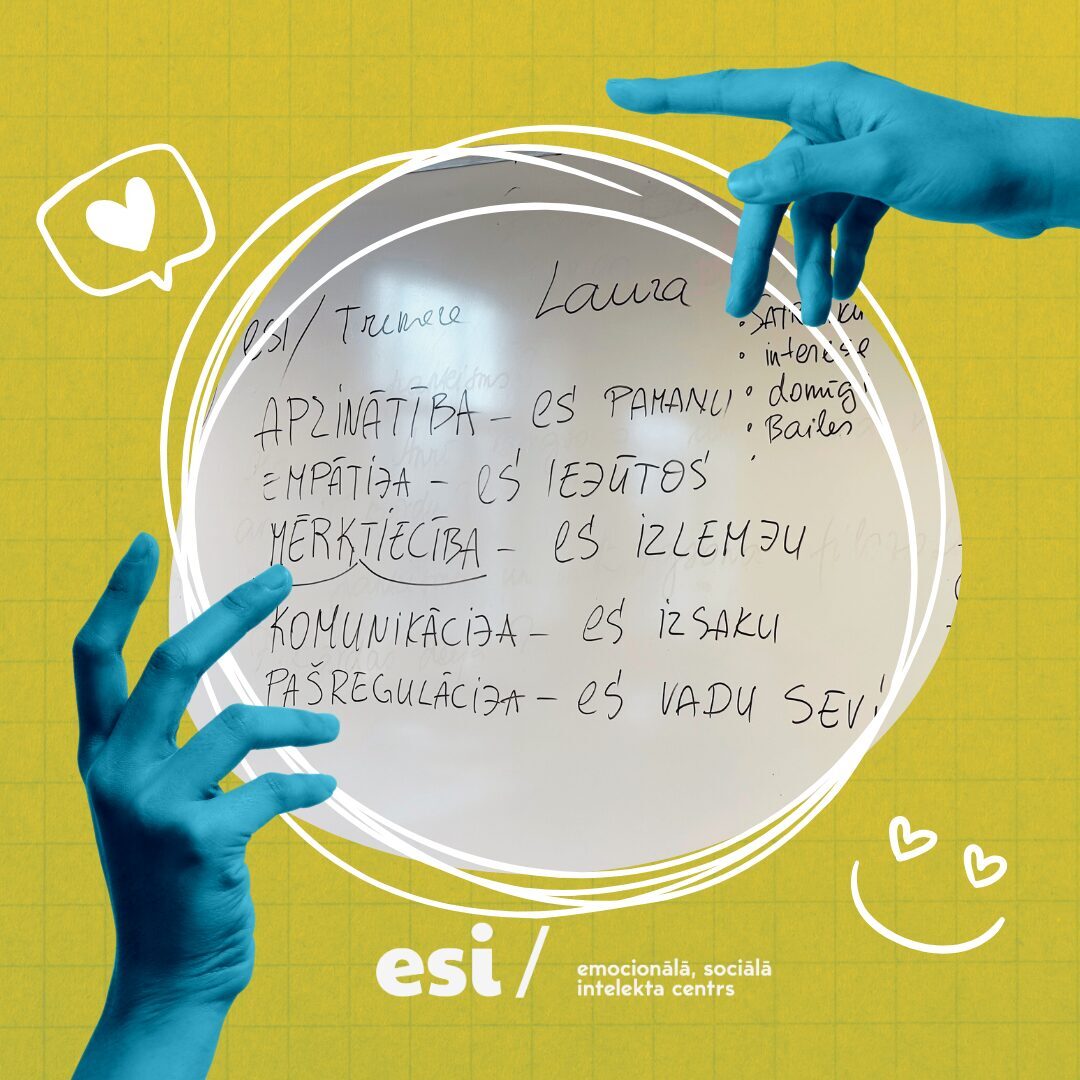 esi / Trenere Laura
• interese
• domīg
• Bailes
APZINĀTĪBA – eS PAMANU
EMPĀTIJA – eS IEJŪTOS
MĒRĶTIECĪBA – eS IZLEMJU
KOMUNIKĀCIJA – eS IZSAKU
PAŠREGULĀCIJA – eS VADU SEVI
esi /
emocionālā, sociālā
intelekta centrs